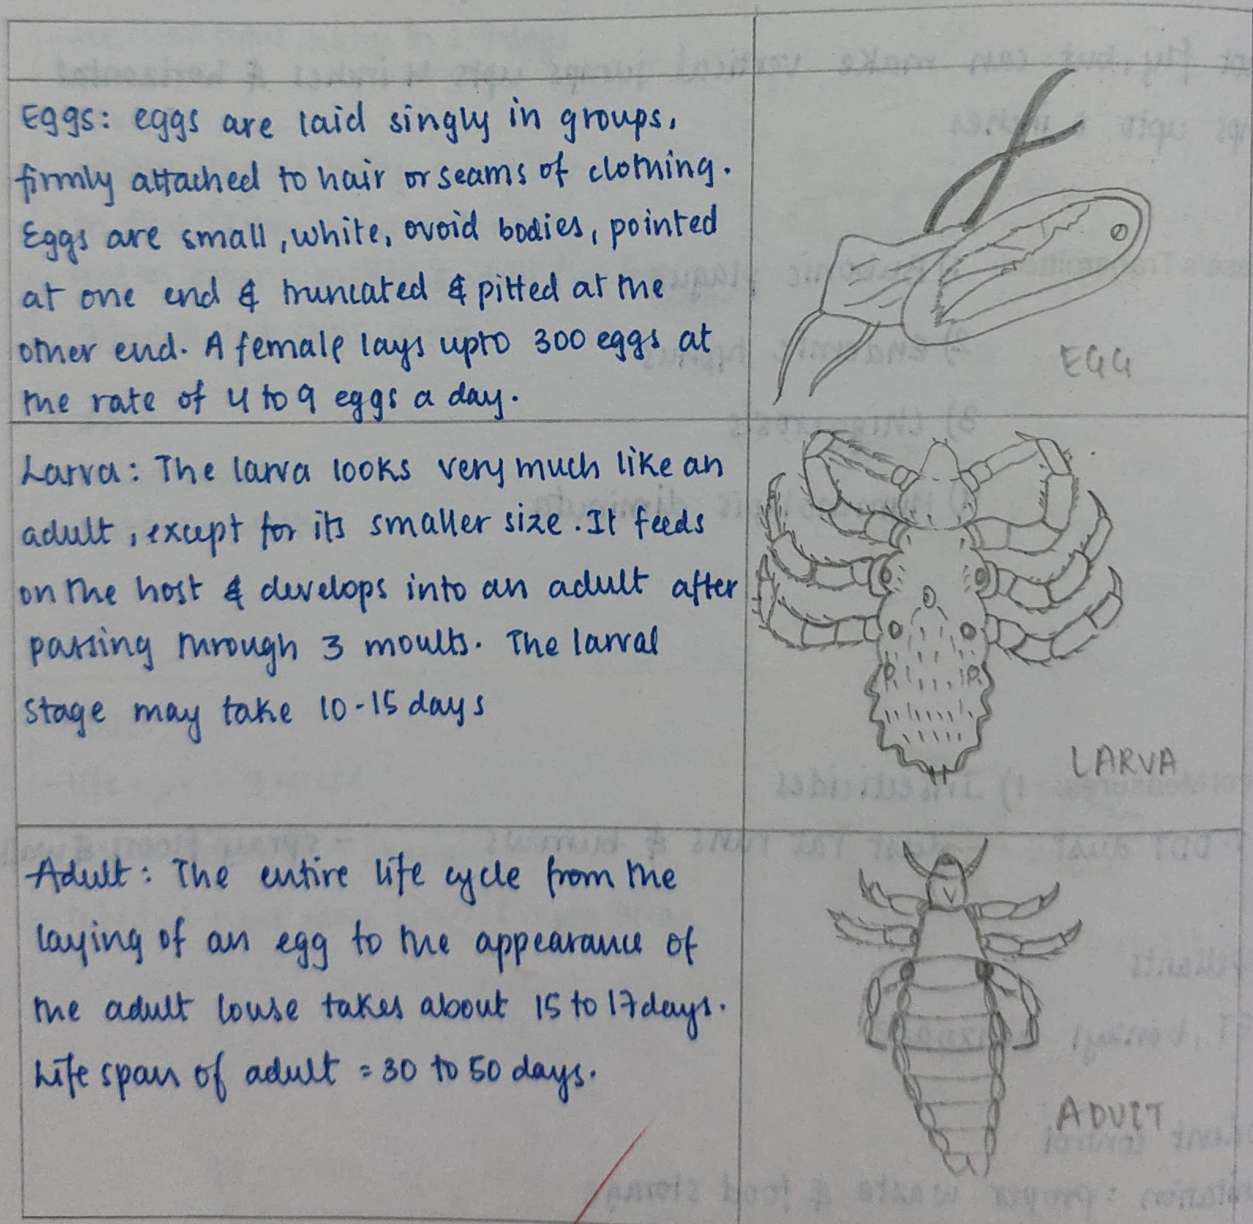 Eggs: eggs are laid singly in groups,
firmly attached to hair or seams of clothing.
Eggs are small, white, ovoid bodies, pointed
at one end & truncated & pitted at the
other end. A female lays upto 300 eggs at
the rate of 4 to 9 eggs a day.
EGG
Larva: The larva looks very much like an
adult, except for its smaller size. It feeds
on the host & develops into an adult after
passing through 3 moults. The larval
stage may take 10-15 days
LARVA
Adult: The entire life cycle from the
laying of an egg to the appearance of
the adult louse takes about 15 to 17 days.
Life span of adult = 30 to 50 days.
ADULT